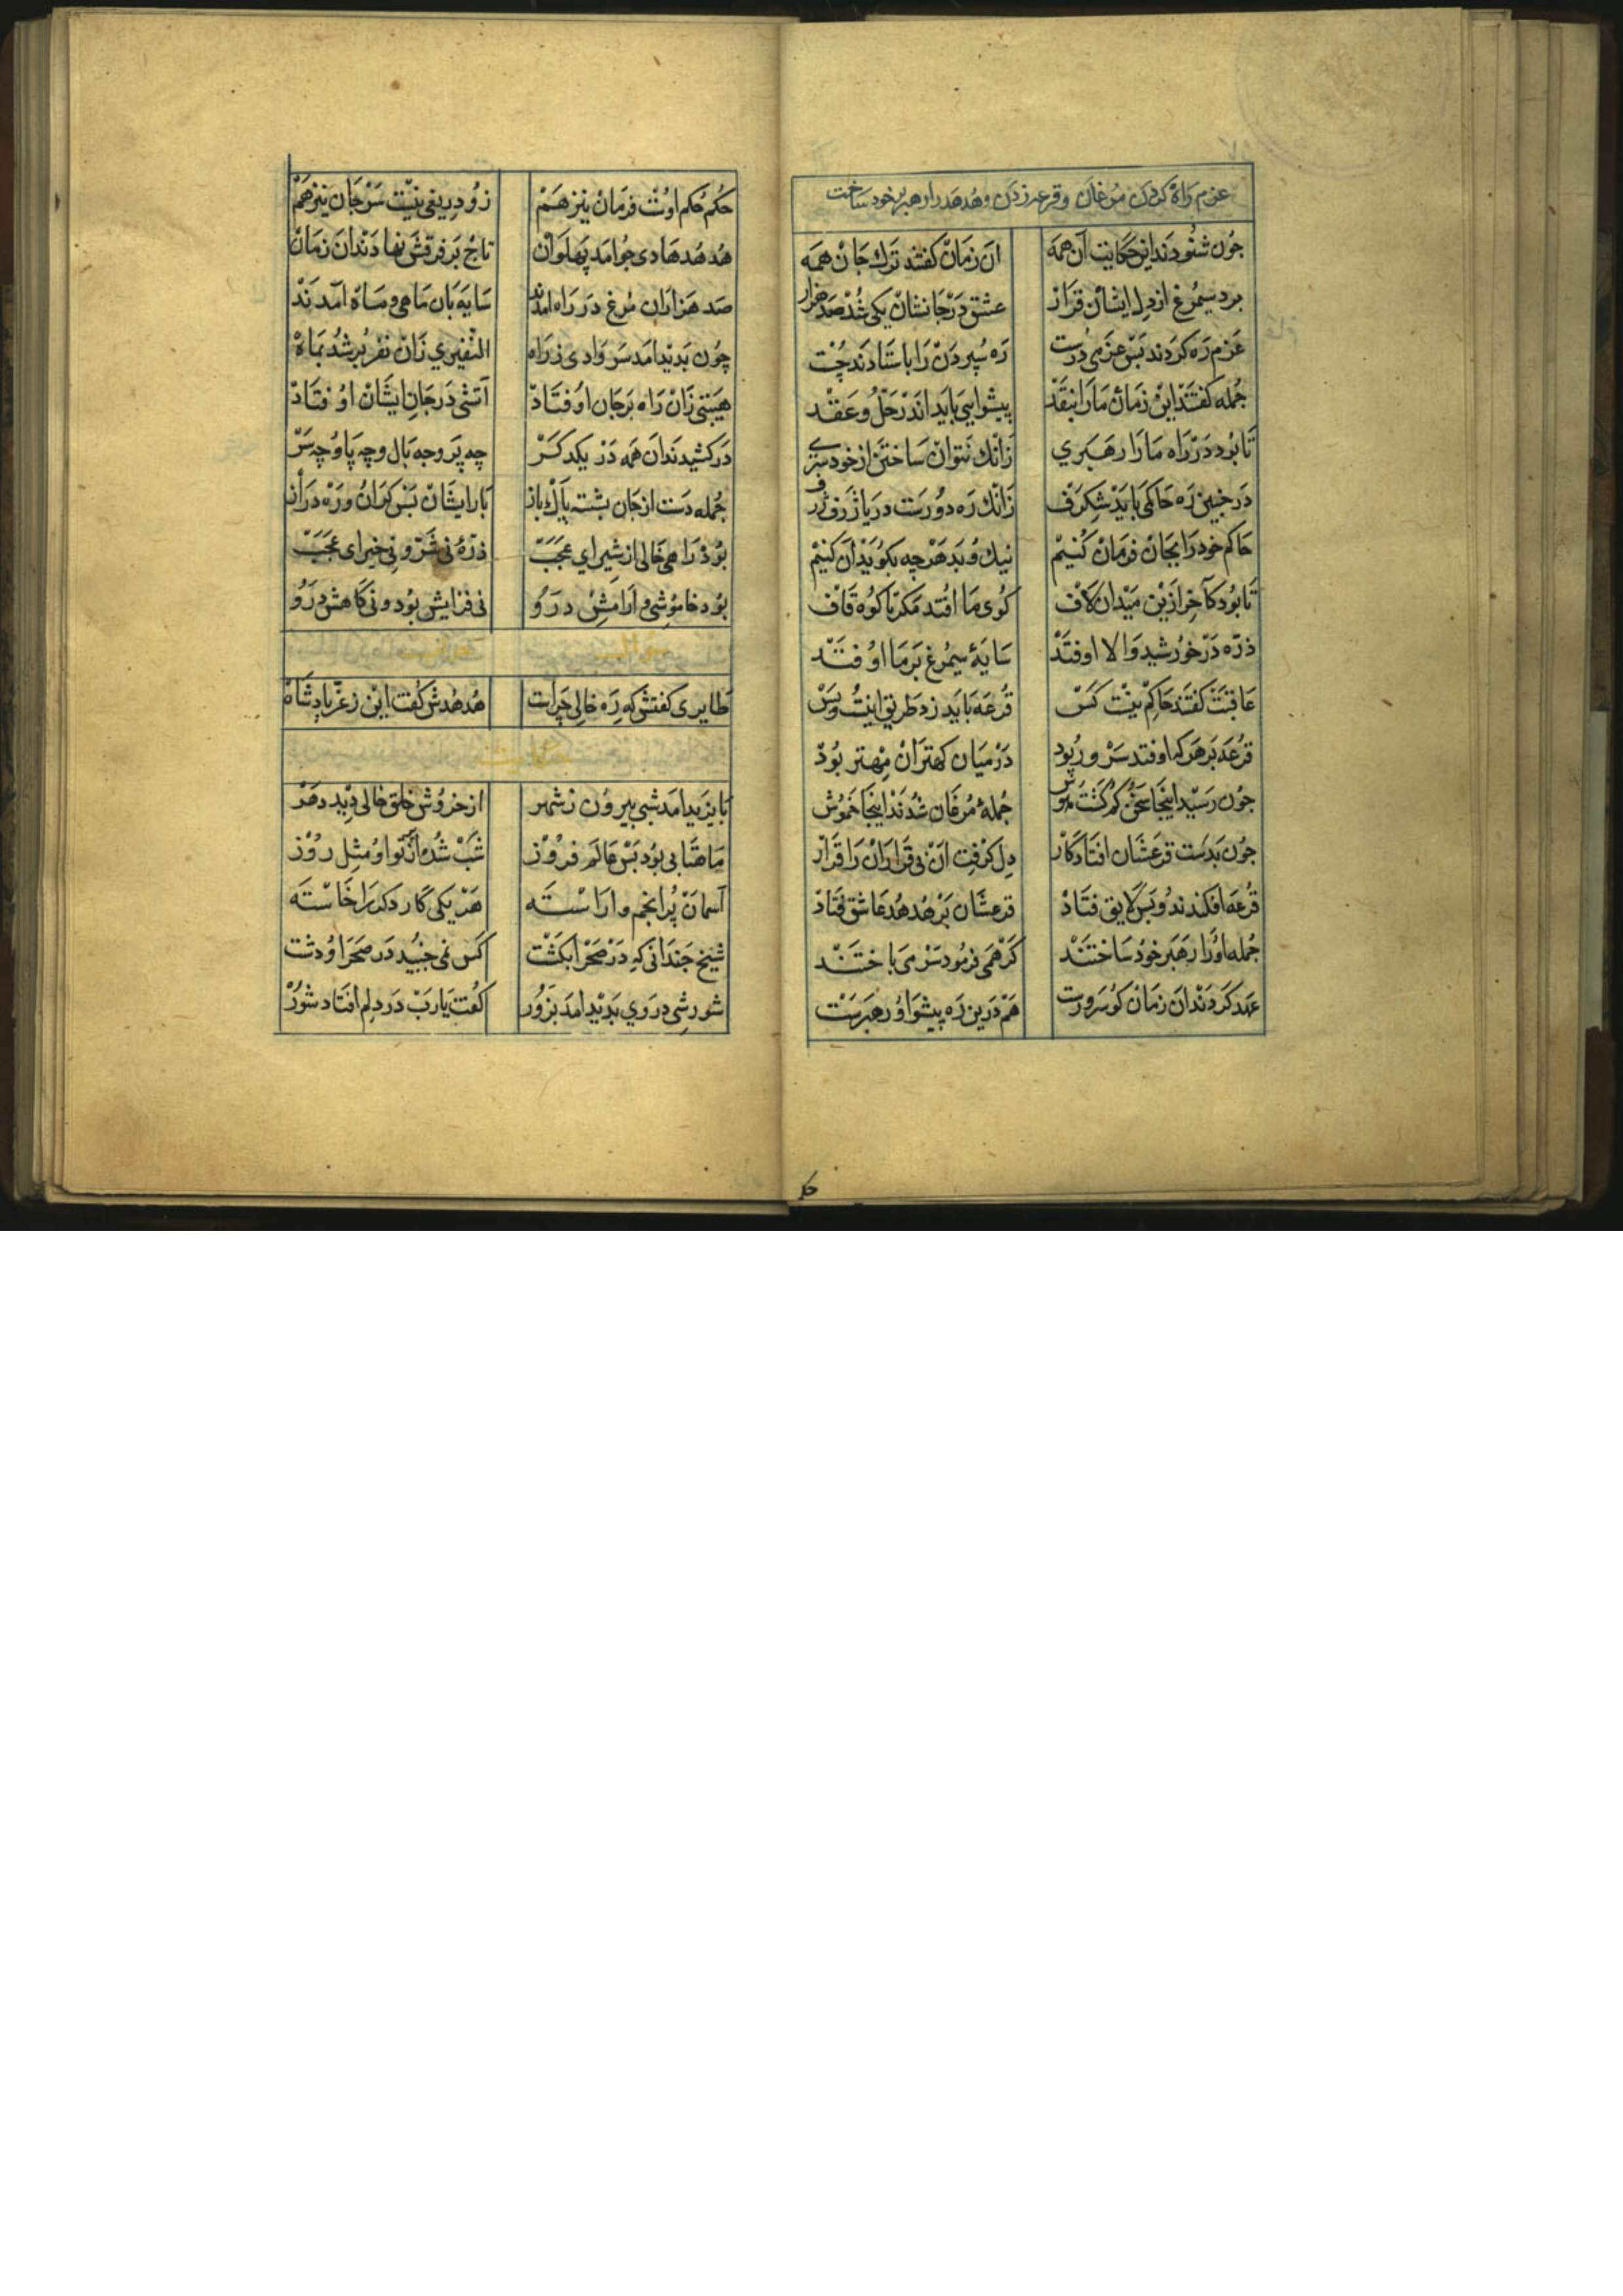 عزم راه کردن مرغان و قرعه زدن و هدهد را رهبر خود ساخت
چون شنودند این حکایت آن همه آن زمان گفتند ترک جان همه
برد سیمرغ از دل ایشان قرار عشق در جانشان یکی شد صد هزار
عزم ره کردند بس عزمی درست ره سپردن را باستادند چست
جمله گفتند این زمان ما را بنقد پیشوایی باید اندر حل و عقد
تا بود در راه ما را رهبری زانک نتوان ساختن از خود سری
در چنین ره حاکمی باید شگرف زانک ره دورست دریا ژرف ژرف
حاکم خود را بجان فرمان کنیم نیک و بد هرچه بگوید آن کنیم
تا بود کآخر ازین میدان لاف کوی ما افتد مکر تا کوه قاف
ذره در خورشید والا اوفتد سایهٔ سیمرغ بر ما اوفتد
عاقبت گفتند حاکم نیست کس قرعه باید زد طریق اینست و بس
قرعه بر هر که اوفتد سرور بود در میان کهتران مهتر بود
چون رسید اینجا سخن کم گشت جوش جملهٔ مرغان شدند اینجا خموش
چون بدست قرعشان افتاد کار دل گرفت آن بی قراران را قرار
قرعه افکندند و بس لایق فتاد قرعشان بر هدهد عاشق فتاد
جمله او را رهبر خود ساختند گر همی فرمود سر می باختند
عهد کردند آن زمان کو سرورست هم درین ره پیشوا و رهبرست
حکم حکم اوست فرمان نیز هم زو دریغی نیست سر جان نیز هم
هدهد هادی چو آمد پهلوان تاج بر فرقش نهادند آن زمان
صد هزاران مرغ در راه آمدند سایه بان ماهی و ماه آمدند
چون بدید آمد سر وادی ز راه النفیری زان نفر برشد بماه
هیبتی زان راه بر جان اوفتاد آتشی در جان ایشان اوفتاد
درکشیدند آن همه در یکدگر سر چه پر و چه بال و چه پا و چه سر
جمله دست از جان بشسته پاک باز بار ایشان بس گران و ره دراز
بود راهی خالی از شیر ای عجب ذرهٔ نی شر و نی خیر ای عجب
بود خاموشی و آرامش درو نی فزایش بود و نی کاهش درو
طایری گفتش که ره خالی چراست هدهدش گفت این ز عز پادشاه
بایزید آمد شبی بیرون ز شهر از خروش خلق خالی دید دهر
ماهتابی بود بس عالم فروز شب شده از پرتو او مثل روز
آسمان پر انجم و آراسته هر یکی کار دگر را خاسته
شیخ چندانی که در صحرا بگشت کس نمی جنبید در صحرا و دشت
شورشی در وی بدید آمد بزور گفت یا رب در دلم افتاد شور